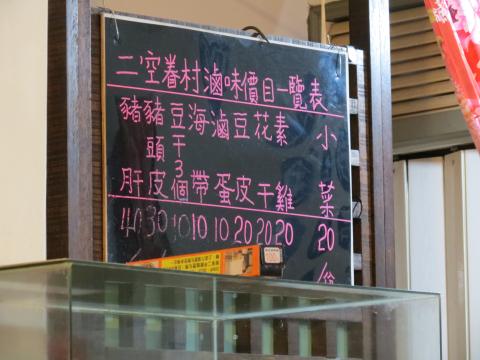 二空眷村滷味價目一覽表
豬肝 40
豬頭皮 30
豆干3個 10
海帶 10
滷蛋 10
豆皮 20
花干 20
素雞 20
小菜 20/份